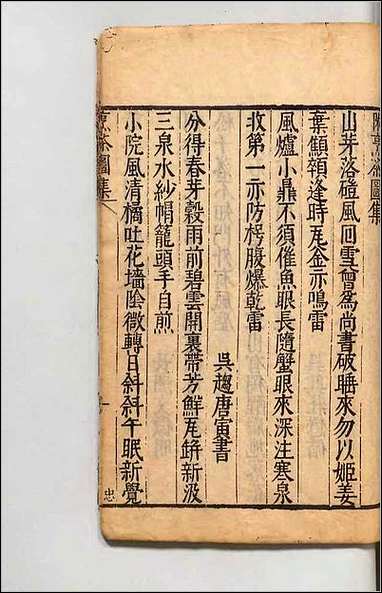 烹茶圖集
山芽落磑風回雪曾為尚書破睡來勿以姬姜
棄顦顇逢時瓦釜亦鳴雷
風爐小鼎不須催魚眼長隨蟹眼來深注寒泉
收第一亦防枵腹爆乾雷
吳趨唐寅書
分得春芽穀雨前碧雲開裹帶芳鮮瓦缾新汲
三泉水紗帽籠頭手自煎
小院風清橘吐花墻陰微轉日斜斜午眠新覺
烹茶圖集
忠